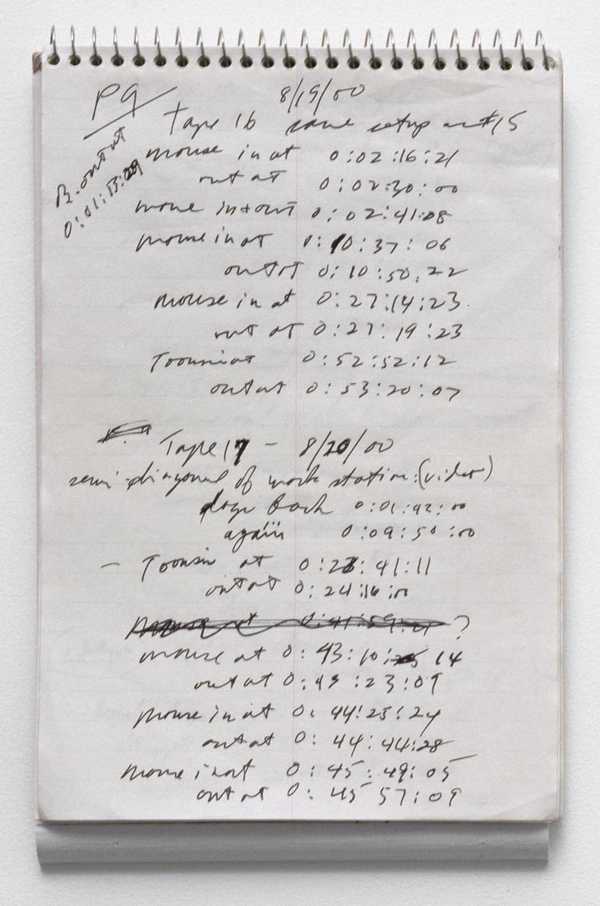 P9
8/19/00
Tape 16 same setup as #15
B. out at
0:01:13:29
mouse in at 0:02:16:21
out at 0:02:30:00
mouse in + out 0:02:41:08
mouse in at 0:10:37:06
out at 0:10:50:22
mouse in at 0:27:14:23
out at 0:27:19:23
Toonsi at 0:52:52:12
out at 0:53:20:07
Tape 17 - 8/20/00
semi-diagonal of work station: (video)
dogs bark 0:01:42:00
again 0:09:50:00
- Toonsi at 0:23:41:11
out at 0:24:16:11
?
mouse at 0:43:10: 14
out at 0:43:23:09
mouse in at 0:44:25:24
out at 0:44:44:28
mouse in at 0:45:49:05
out at 0:45 57:09